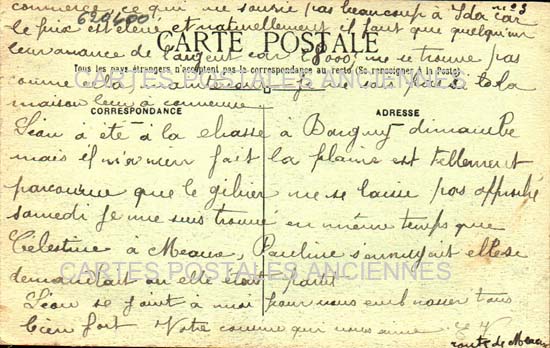 commerce, ce qui ne sourie pas beaucoup à Ida car
n° 3
620400
le prix est élevé et naturellement il faut que quelqu'un
leur avance de l'argent car 28000 ne se trouve pas
CARTE POSTALE
Tous les pays étrangers n'acceptent pas la correspondance au recto (Se renseigner à la Poste)
comme cela
maison leur a convenue
CORRESPONDANCE
ADRESSE
Léon a été à la chasse à Bargny dimanche
mais il n'a rien fait la plaine est tellement
parcourue que le gibier ne se laisse pas approché
samedi je me suis trouvé en même temps que
Célestine à Meaux, Pauline s'ennuyait elle se
CARTES POSTALES ANCIENNES
demandait où elle était partis
Léon se joint à moi pour vous embrasser tous
bien fort Votre cousine qui vous aime
route de Meaux